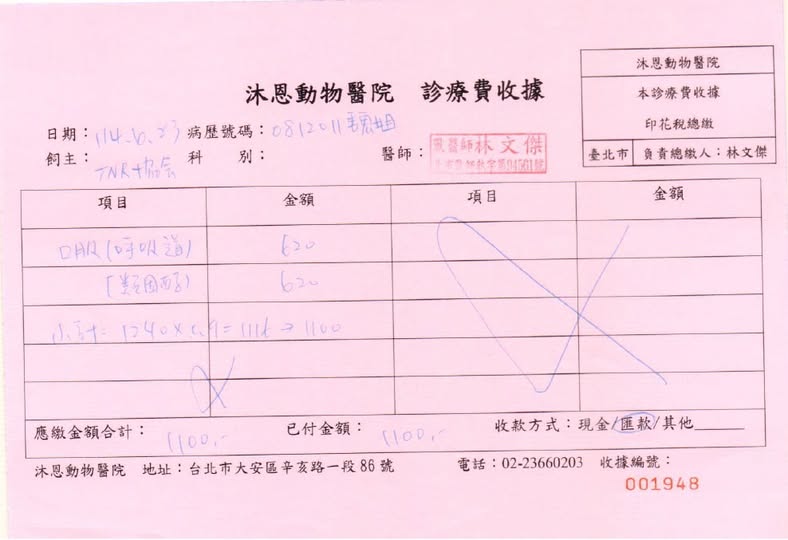 沐恩動物醫院 診療費收據
沐恩動物醫院
本診療費收據
印花稅總繳
臺北市 負責總繳人:林文傑
日期:114.6.23 病歷號碼:0812011
飼主:TNR+協會 科 別: 醫師:獸醫師 林文傑
項目 金額 項目 金額
口服(呼吸道) 620
(類固醇) 620
小計=1240×0.9=1116→1100
應繳金額合計:1100,- 已付金額:1100,- 收款方式:現金/匯款/其他
沐恩動物醫院 地址:台北市大安區辛亥路一段86號 電話:02-23660203 收據編號:
001948